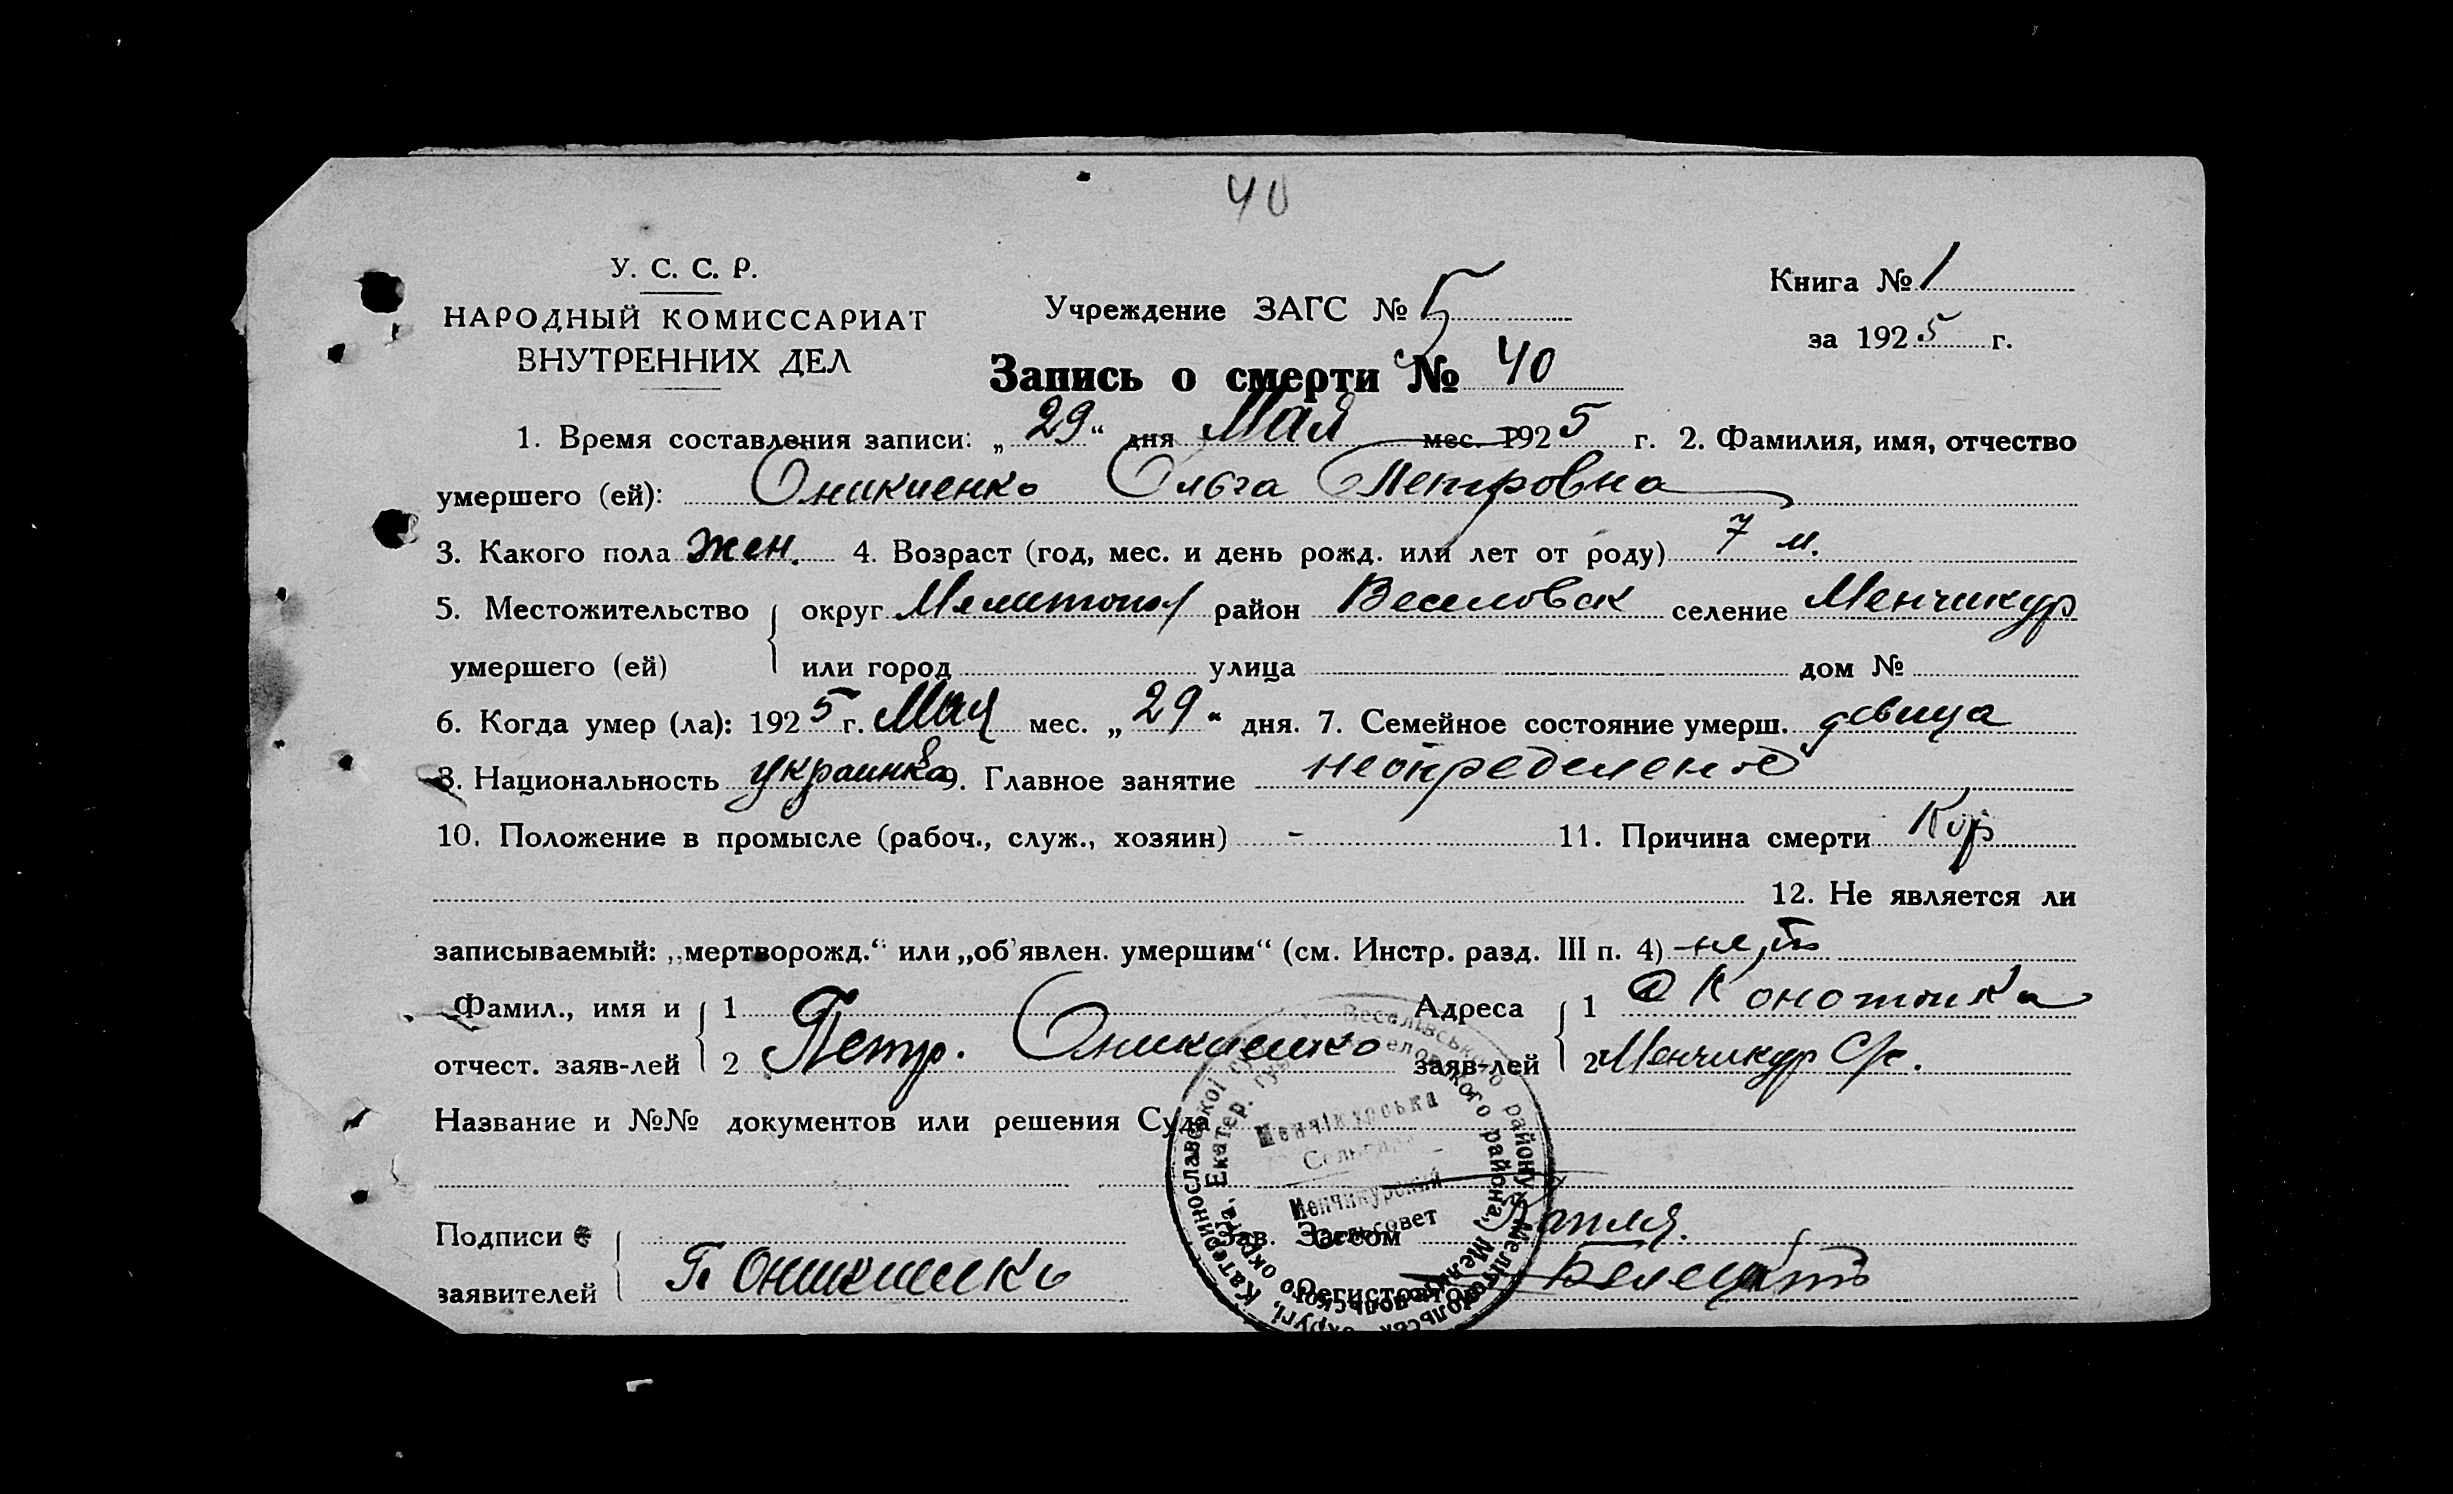 40
У. С. С. Р.
НАРОДНЫЙ КОМИССАРИАТ
ВНУТРЕННИХ ДЕЛ
Учреждение ЗАГС № 5
Книга № 1
за 1925 г.
Запись о смерти № 40
1. Время составления записи: „29“ дня Мая мес. 1925 г. 2. Фамилия, имя, отчество
умершего (ей): Оникиенко Ольга Петровна
3. Какого пола жен. 4. Возраст (год, мес. и день рожд. или лет от роду) 7 м.
5. Местожительство округ Мелитопол район Веселовск селение Менчикур
умершего (ей) или город улица дом №
6. Когда умер (ла): 1925 г. Мая мес. „29“ дня. 7. Семейное состояние умерш. девица
8. Национальность украинка 9. Главное занятие неопределено
10. Положение в промысле (рабоч., служ., хозяин) - 11. Причина смерти Кор
12. Не является ли
записываемый: „мертворожд.“ или „об'явлен. умершим“ (см. Инстр. разд. III п. 4) нет
Фамил., имя и 1 Адреса 1
отчест. заяв-лей 2 Петр. Оникиенко заяв-лей 2 Менчикур С/с.
Название и №№ документов или решения Суда
Менчікурська
Сельрада
Менчикурский
Сельсовет
Подписи Зав. Загсом
заявителей П. Оникиенко Регистратор